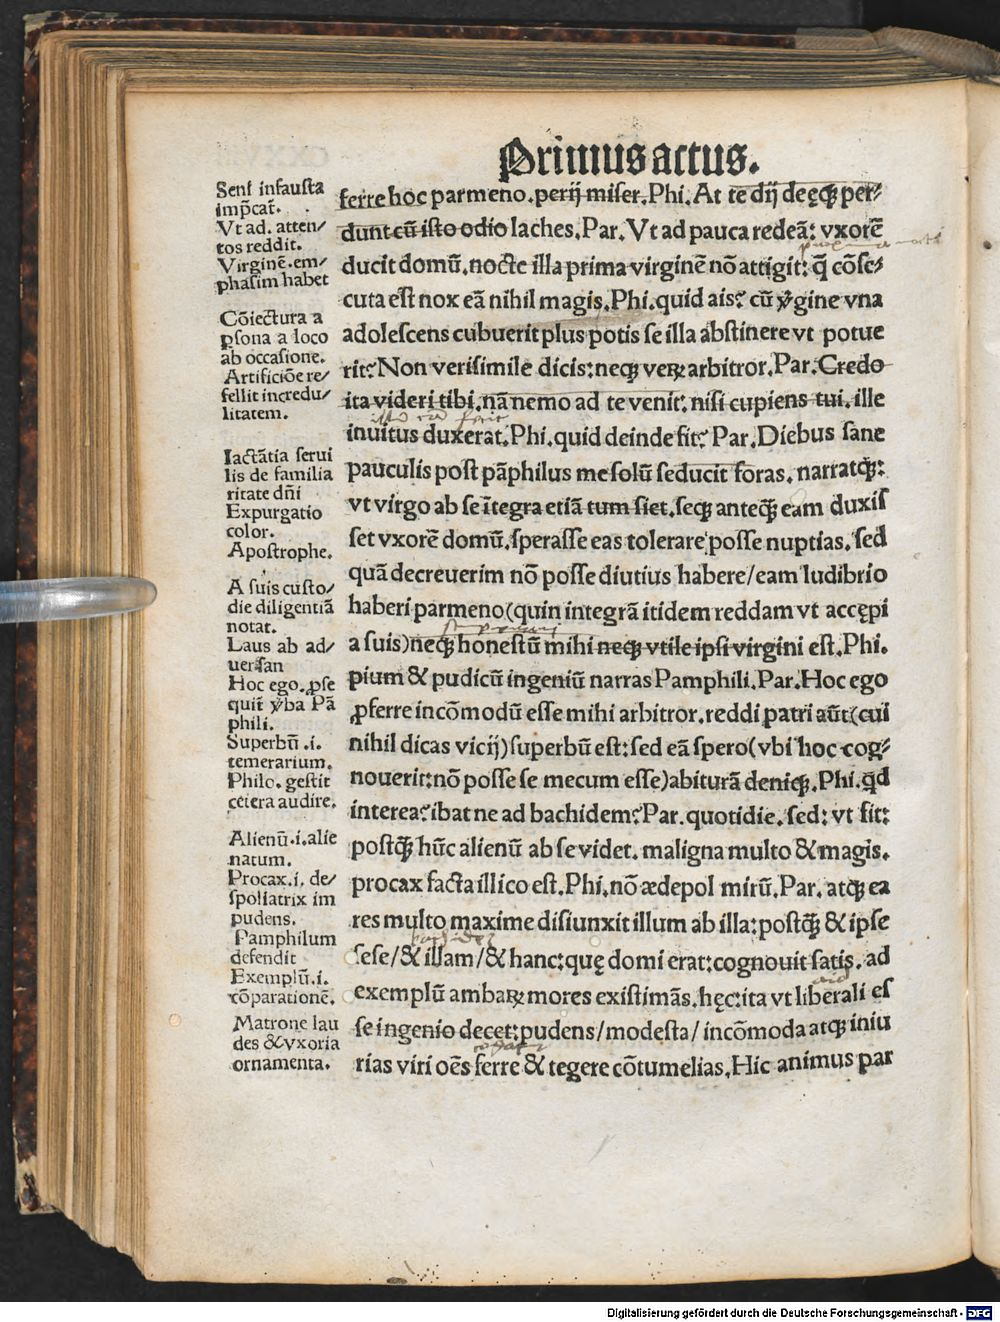 Primus actus.
Seni infausta
imp̄cat̄.
Vt ad. atten/
tos reddit.
Virginē. em/
phasim habet
Cōiectura a
ꝑsona a loco
ab occasione.
Artificiōe re/
fellit incredu/
litatem.
Iactātia serui
lis de familia
ritate dn̄i
Expurgatio
color.
Apostrophe.
A suis custo/
die diligentiā
notat.
Laus ab ad/
uersan
Hoc ego. ꝓse
quit̄ v̄ba Pā
phili.
Superbū .i.
temerarium.
Philo. gestit
cetera audire.
Alienū .i. alie
natum.
Procax .i. de/
spoliatrix im
pudens.
Pamphilum
defendit
Exemplū .i.
cōparationē.
Matrone lau
des & vxoria
ornamenta.
ferre hoc parmeno. perij miser. Phi. At te dij deęq́ꝫ per⸗
dunt cū isto odio laches. Par. Vt ad pauca redeā: vxorē
ducit domū. nocte illa prima virginē nō attigit: q̄ cōse⸗
cuta est nox eā nihil magis. Phi. quid ais? cū v̄gine vna
adolescens cubuerit plus potis se illa abstinere vt potue
rit? Non verisimile dicis: neqꝫ veꝝ arbitror. Par. Credo
ita videri tibi. nā nemo ad te venit: nisi cupiens tui. ille
inuitus duxerat. Phi. quid deinde fit? Par. Diebus sane
pauculis post pāphilus me solū seducit foras. narratqꝫ:
vt virgo ab se ītegra etiā tum siet. seqꝫ anteq̄ꝫ eam duxis
set vxorē domū. sperasse eas tolerare posse nuptias. sed
quā decreuerim nō posse diutius habere/eam ludibrio
haberi parmeno(quin integrā itidem reddam vt accępi
a suis)neqꝫ honestū mihi neqꝫ vtile ipsi virgini est. Phi.
pium & pudicū ingeniū narras Pamphili. Par. Hoc ego
ꝓferre incōmodū esse mihi arbitror. reddi patri aūt(cui
nihil dicas vicij)superbū est: sed eā spero(vbi hoc cog⸗
nouerit: nō posse se mecum esse)abiturā deniqꝫ. Phi. q̇d
interea? ibat ne ad bachidem? Par. quotidie. sed: vt fit:
postq̄ꝫ hūc alienū ab se videt. maligna multo & magis.
procax facta illico est. Phi. nō ædepol mirū. Par. atqꝫ ea
res multo maxime disiunxit illum ab illa: postq̄ꝫ & ipse
sese/& illam/& hanc: quę domi erat: cognouit satis. ad
exemplū ambaꝝ mores existimās. hęc: ita vt liberali es
se ingenio decet: pudens/modesta/incōmoda atqꝫ iniu
rias viri oēs ferre & tegere cōtumelias. Hic animus par
Digitalisierung gefördert durch die Deutsche Forschungsgemeinschaft - DFG